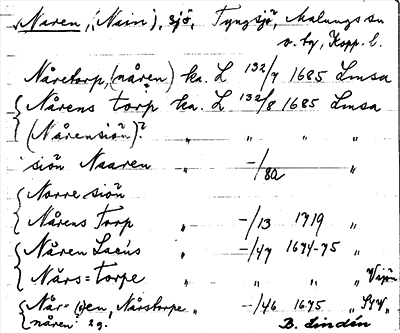 Naren, (Nain), sjö, Tyngsjö, Malungs sn
o. by, Kopp. l.
Nåretorp, (nåren) ka. L 132/7 1685 Lmsa
Nårens torp ka. L 132/8 1685 Lmsa
(Nårensiön)? " " " "
siön Naaren " -/82 "
Norre siön
Nårens Torp " -/13 1719 "
Nåren Lacus " -/47 1674-75 "
Nårs=torpe " " "
Når=en, Nårstorpe " -/46 1675 "
nåren 29. B. Lindén